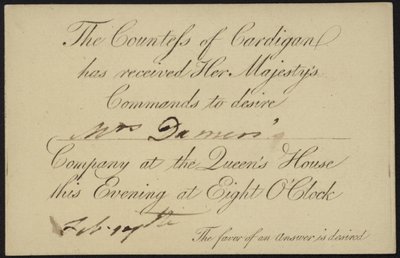 The Countess of Cardigan
has received Her Majesty's
Commands to desire
Mrs Damer's
Company at the Queen's House
this Evening at Eight O'Clock
Feb. 17th
The favor of an Answer is desired